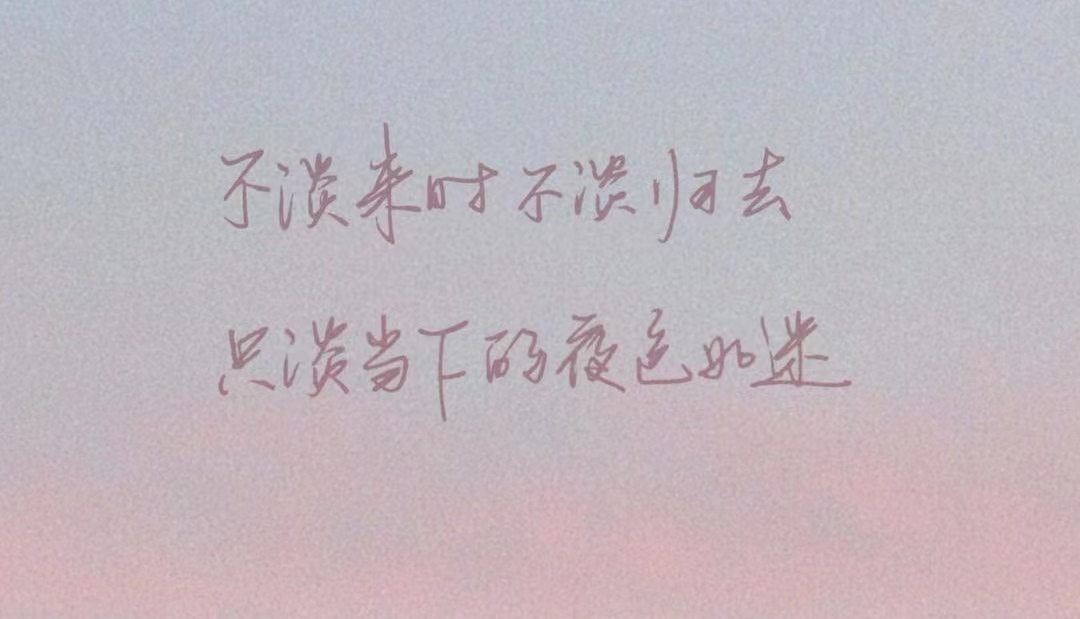 不谈来时不谈归去
只谈当下的夜色如迷